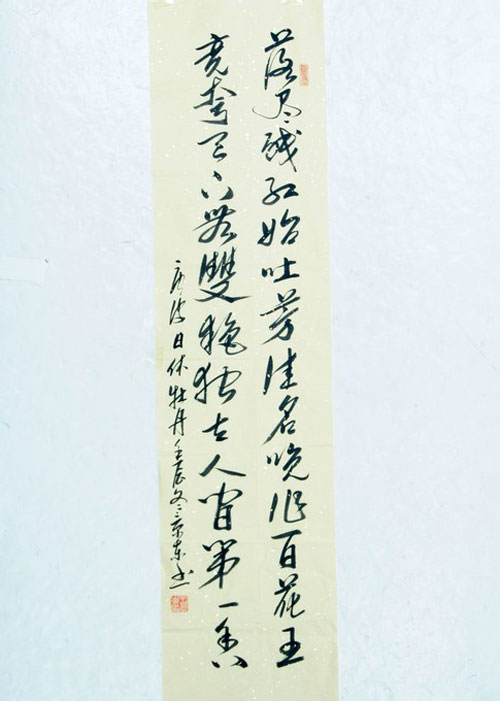 落尽残红始吐芳佳名唤作百花王
竞夸天下無雙艳独占人间第一香
唐皮日休牡丹壬辰冬京东书